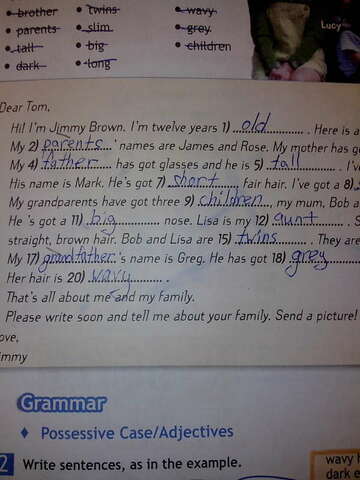 • brother • twins • wavy
• parents • slim • grey Lucy
• tall • big • children
• dark • long
Dear Tom,
Hi! I'm Jimmy Brown. I'm twelve years 1) old. Here is a
My 2) parents' names are James and Rose. My mother has go
My 4) father has got glasses and he is 5) tall. I'v
His name is Mark. He's got 7) short fair hair. I've got a 8)
My grandparents have got three 9) children, my mum, Bob a
He 's got a 11) big nose. Lisa is my 12) aunt. S
straight, brown hair. Bob and Lisa are 15) twins. They are
My 17) grandfather's name is Greg. He has got 18) grey
Her hair is 20) wavy.
That's all about me and my family.
Please write soon and tell me about your family. Send a picture!
ove,
immy
Grammar
♦ Possessive Case/Adjectives
2 Write sentences, as in the example.
wavy h
dark e